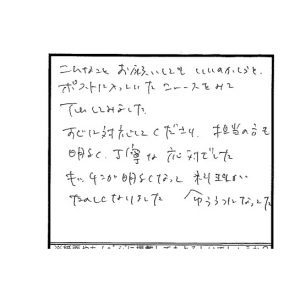 こんなこと お願いしても いいのかしらと、
ポストに入っていた ニュースをみて
TELしてみました。
すぐに対応してくださり、担当の方も
明るく、丁寧な 応対でした
キッチンが明るくなって お料理が
たのしくなりました ゆううつになってた